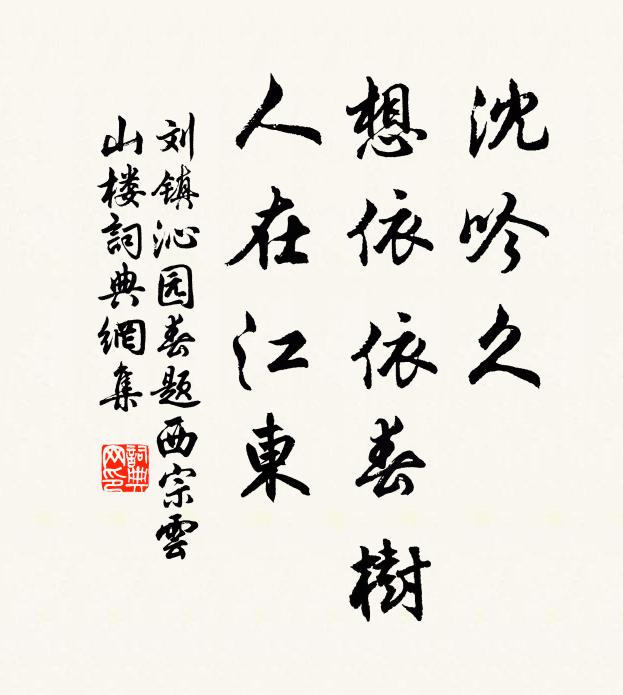 沈吟久
想依依春樹
人在江東
刘镇沁园春题西宗雲
山楼詞典網集
詞典网印